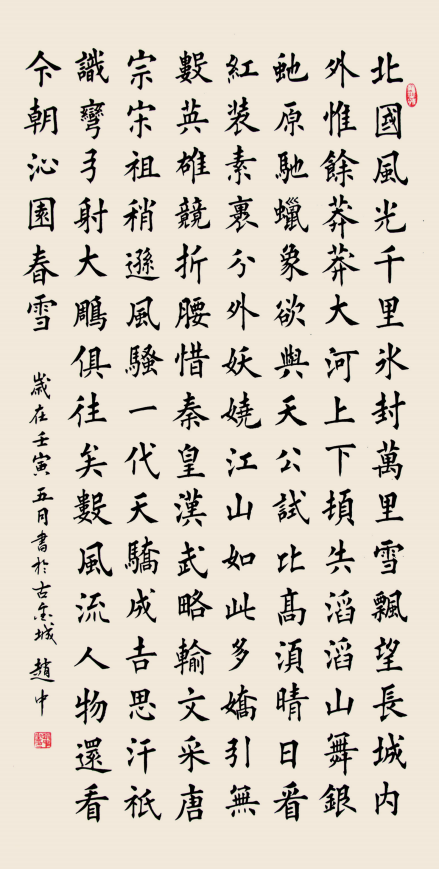 北國風光千里氷封萬里雪飄望長城内
外惟餘莽莽大河上下頓失滔滔山舞銀
虵原馳蠟象欲與天公試比髙須晴日看
紅裝素裹分外妖嬈江山如此多嬌引無
數英雄競折腰惜秦皇漢武略輸文采唐
宗宋祖稍遜風騷一代天驕成吉思汗祇
識彎弓射大鵰俱往矣數風流人物還看
今朝沁園春雪
歲在壬寅五月書於古城趙中